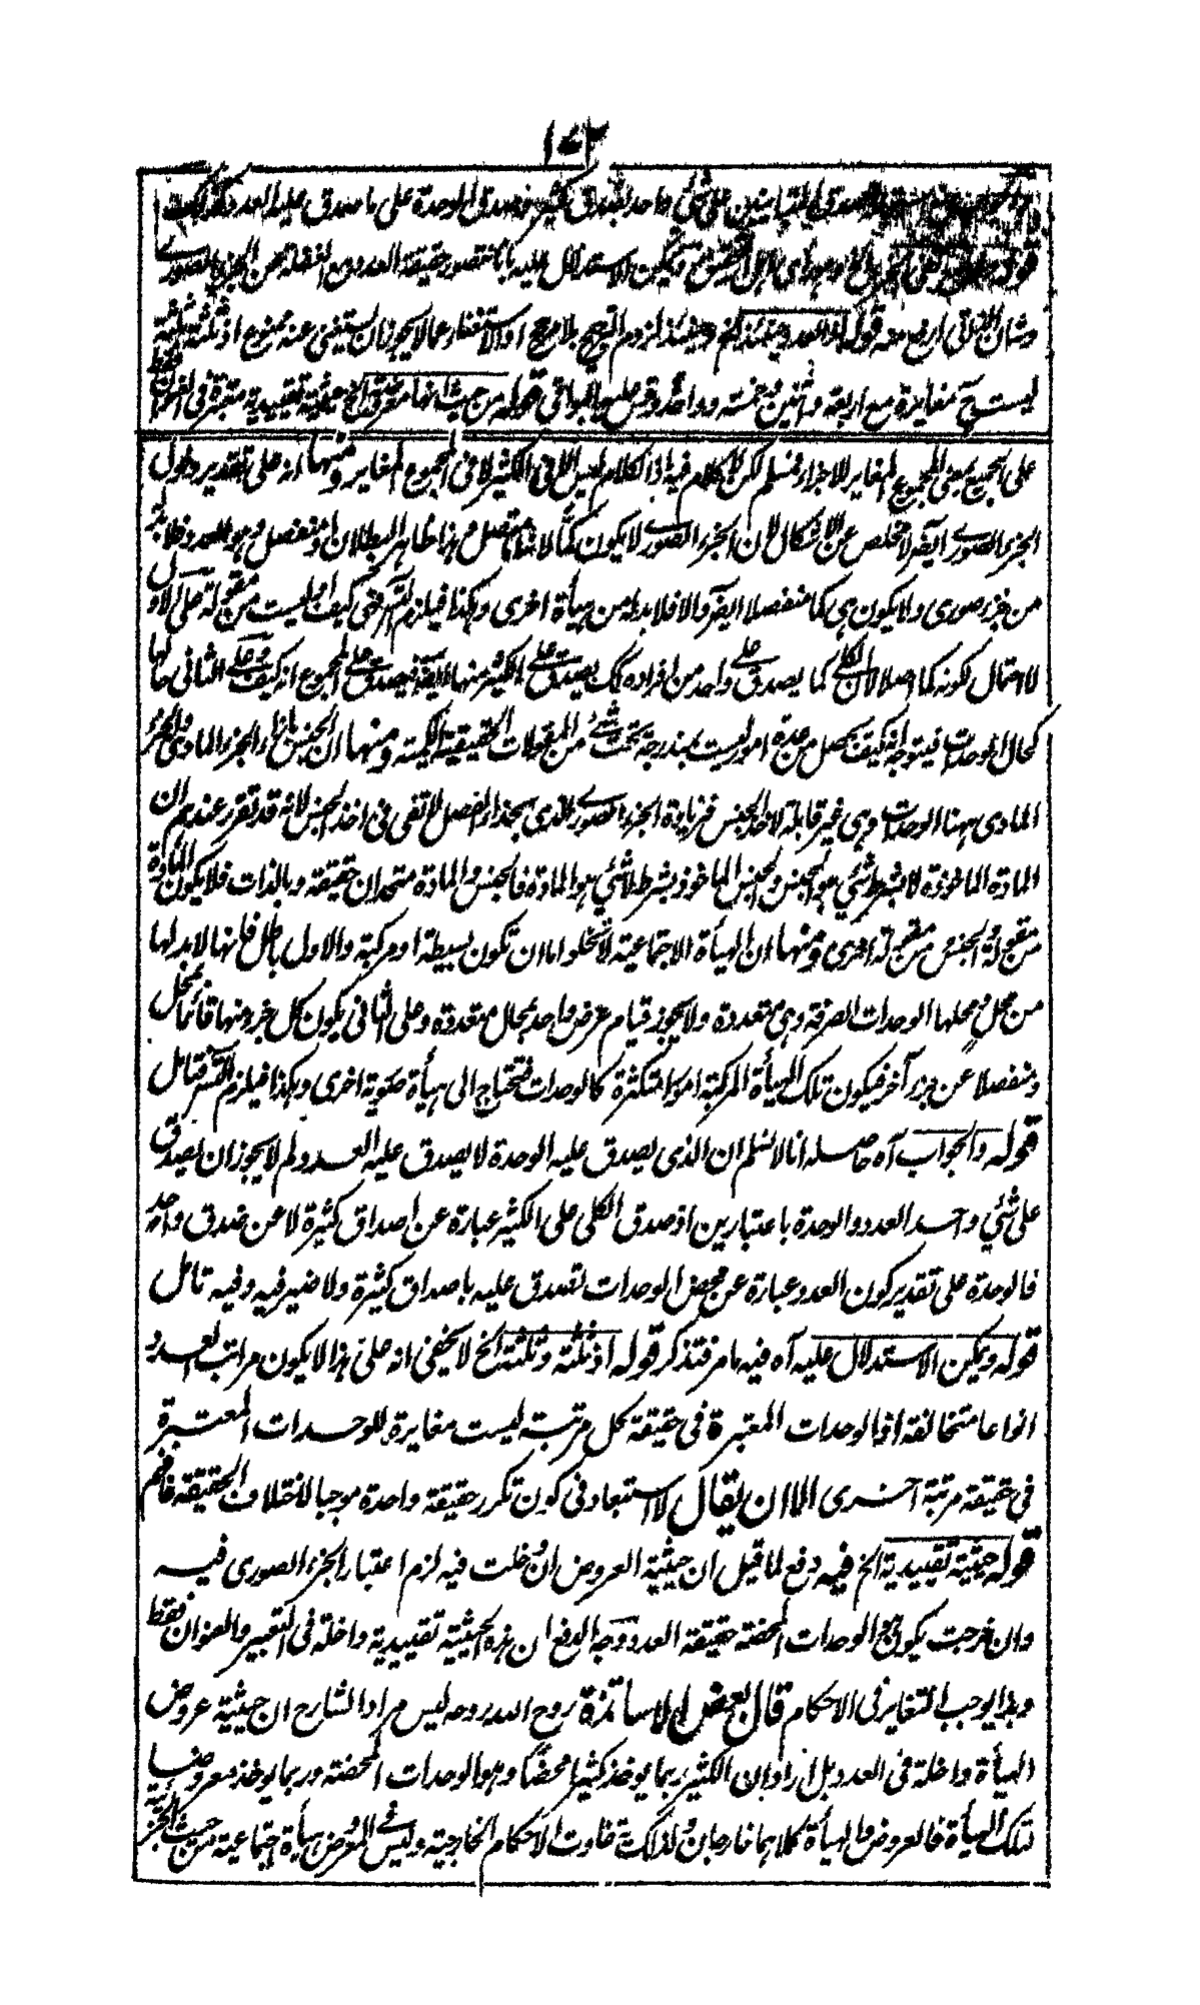 ١٧٢
المتباينين على شئ واحد لصدق كثير فصدق الوحدة على ما صدق عليه العدد
قوله ويمكن الاستدلال عليه بانا نتصور حقيقة العدد مع الغفلة عن الجزء الصورى
وشان الذاتى ارفع منه قوله اذ العدد حينئذ الخ وحينئذ لزوم الترجيح بلا مرجح او الاستغناء عما لا يجوز ان يستغنى عنه ممنوع اذ ثلثة ثلثة
ليست مغايرة مع اربعة واثنين وخمسة وواحد وقس عليه البواقى قوله من حيث انها معروضة الخ حيثية تقييدية معتبرة فى العنوان
على الجميع بمعنى المجموع المغاير للاجزاء فمسلم لكن لا كلام فيه اذ الكلام ليس الا فى الكثير لا فى المجموع المغاير ومنها انه على تقدير دخول
الجزء الصورى ايضا لا مخلص عن الاشكال لان الجزء الصورى لا يكون كما لانه اما متصل وهذا ظاهر البطلان او منفصل وهو العدد فلا بد له
من جزء صورى ولا يكون هى كما منفصلا ايضا والا فلا بد له من هيأة اخرى وهكذا فيلزم التسلسل حتى كيف اذ ليست من مقولة على الاول
لا احتمال لكونه كما اصلا لان الكلى كما يصدق على واحد من افراده كك يصدق على الكثير منها ايضا فيصدق على المجموع انه كيف وعلى الثانى حالها
كحال الوحدات فيتوجه انه كيف يحصل من عدة امور ليست بمندرجة تحت شئ من المقولات الحقيقية الكمية ومنها ان الجنس بازاء الجزء المادى والجزء
المادى ههنا الوحدات وهى غير قابلة لاخذ الجنس فزيادة الجزء الصورى الذى بحذاء الفصل لا تفى فى اخذ الجنس لانه قد تقرر عندهم ان
المادة الماخوذة لا بشرط شئ هو الجنس والجنس الماخوذ بشرط لا شئ هو المادة فالجنس والمادة متحدان حقيقة وبالذات فلا يكون المادة
من مقولة والجنس من مقولة اخرى ومنها ان الهيأة الاجتماعية لا تخلو اما ان تكون بسيطة او مركبة والاول باطل فانها لا بد لها
من محل ومحلها الوحدات الصرفة وهى متعددة ولا يجوز قيام عرض واحد بمحال متعددة وعلى الثانى يكون كل جزء منها قائما بمحل
ومنفصلا عن جزء آخر فيكون تلك الهيأة المركبة امورا متكثرة كالوحدات فتحتاج الى هيأة صورية اخرى وهكذا فيلزم التسلسل فتامل
قوله والجواب آه حاصله انا لا نسلم ان الذى يصدق عليه الوحدة لا يصدق عليه العدد ولم لا يجوز ان يصدق
على شئ واحد العدد والوحدة باعتبارين اذ صدق الكلى على الكثير عبارة عن اصداق كثيرة لا عن صدق واحد
فالوحدة على تقدير كون العدد عبارة عن محض الوحدات تصدق عليه باصداق كثيرة ولا ضير فيه وفيه تامل
قوله ويمكن الاستدلال عليه آه فيه ما مر فتذكر قوله اذ ثلثة وثلثة الخ لا يخفى انه على هذا لا يكون مراتب العدد
انواعا متخالفة اذ الوحدات المعتبرة فى حقيقة كل مرتبة ليست مغايرة للوحدات المعتبرة
فى حقيقة مرتبة اخرى الا ان يقال لا استبعاد فى كون تكرر حقيقة واحدة موجبا لاختلاف الحقيقة فافهم
قوله حيثية تقييدية الخ فيه دفع لما قيل ان حيثية العروض ان دخلت فيه لزم اعتبار الجزء الصورى فيه
وان خرجت يكون محض الوحدات المحضة حقيقة العدد ووجه الدفع ان هذه الحيثية تقييدية داخلة فى التعبير والعنوان فقط
وبه يوجب التغاير فى الاحكام قال بعض الاساتذة روح الله روحه ليس مراد الشارح ان حيثية عروض
الهيأة داخلة فى العدد بل اراد ان الكثير ربما يوخذ كثيرا محضا وهو الوحدات المحضة وربما يوخذ معروضا
لتلك الهيأة فالعروض والهيأة كلاهما خارجان ولذلك تفاوت الاحكام الخارجية وليس فى المعروض هيأة اجتماعية من حيث الجزئية